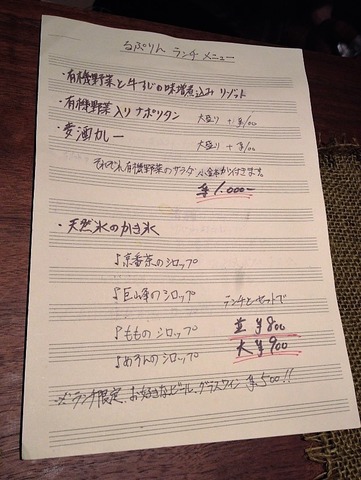 るぷりん ランチ メニュー
・有機野菜と牛すじの味噌煮込み リゾット
・有機野菜入り ナポリタン 大盛り +¥100
・麦酒カレー 大盛り +¥100
それぞれ有機野菜のサラダ、小鉢が付きます。
¥1.000-
・天然氷のかき氷
♪京番茶のシロップ
♪巨峰のシロップ
ランチとセットで
♪もものシロップ 並 ¥800
♪めろんのシロップ 大 ¥900
※ランチ限定、お好きなビール、グラスワイン ¥500!!